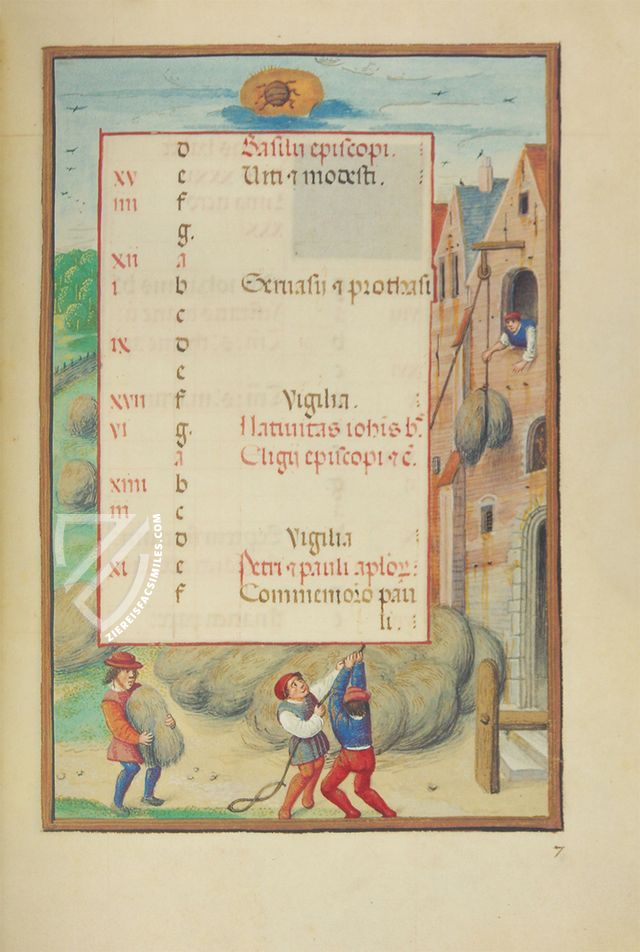 d Basilij episcopi.
xv e Uiti ⁊ modesti.
iiii f
g.
xii a
i b Geruasij ⁊ prothasi
c
ix d
e
xvii f Vigilia.
vi g. Natiuitas iohis b.
a Eligij episcopi ⁊ c.
xiiii b
iii c
d Vigilia
xi e Petri ⁊ pauli aplor:
f Commemoro pau
li.
ZIEREISFACSIMILES.COM
7